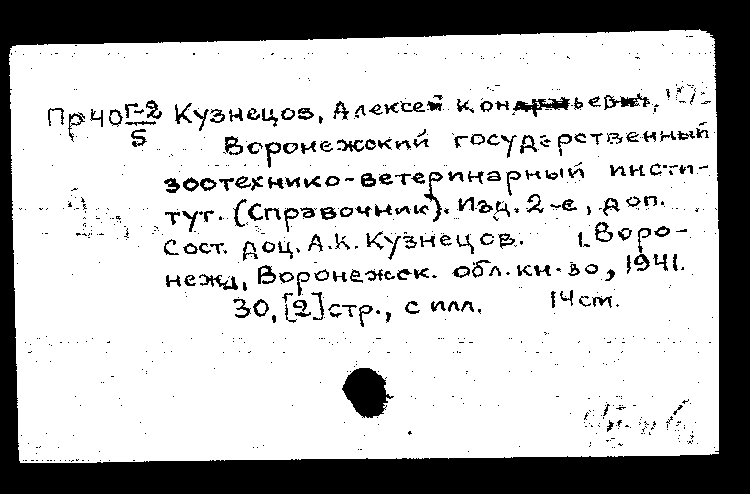 Пр40 Г-2/5 Кузнецов, Алексей
Воронежский государственный
зоотехнико-ветеринарный инсти-
тут. (Справочник). Изд. 2-е, доп.
Сост. доц. А.К. Кузнецов. [Воро-
неж], Воронежск. обл. кн-во, 1941.
30, [2] стр., с илл. 14 cm.